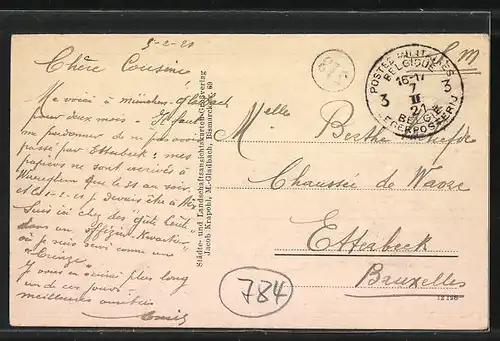 5-2-21
Chère Cousine
Me voici à München-Gladbach
pour deux mois. Il faut
me pardonner de n'pas avoir
passé par Etterbeek: mes
papiers ne sont arrivés à
que le 31 au soir,
et le 1-2-21 je devais être à
Suis ici chez des "gute Leute"
dans un offizier Kwartier,
où je suis seul comme un
J vous en écrirai plus long
un de ces jours.
meilleures amitiés
Städte- und Landschaftsansichtskarten-Großverlag
Jacob Krapohl, M.-Gladbach, Bismarckstr. 69
POSTES MILITAIRES
BELGIQUE
3 3
16-17
7
II
21
BELGIE
LEGERPOSTERIJ
S M
Melle
Berthe
Chaussée de Wavre
Etterbeek
Bruxelles
784